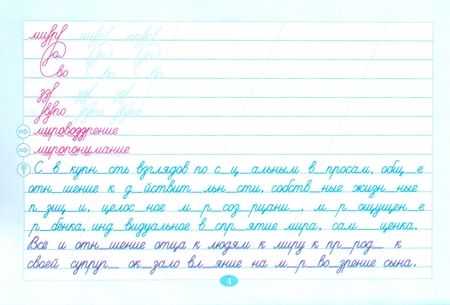 мировоззрение
миропонимание
С в_купн_сть взглядов по с_ц_альным в_просам, общ_е
отн_шение к д_йствит_льн_сти, собств_ные жизн_ные
п_зиц_и, целос_ное м_р_соз_рцани_, м_р_ощущен_е
р_бенка, инд_видуальное в спр_ятие мира, сам__ценка.
Все и отн_шение отца к людям к миру к пр_род_ к
своей супруг_ ок_зало вл_яние на м_р_во_зрение сына.
4